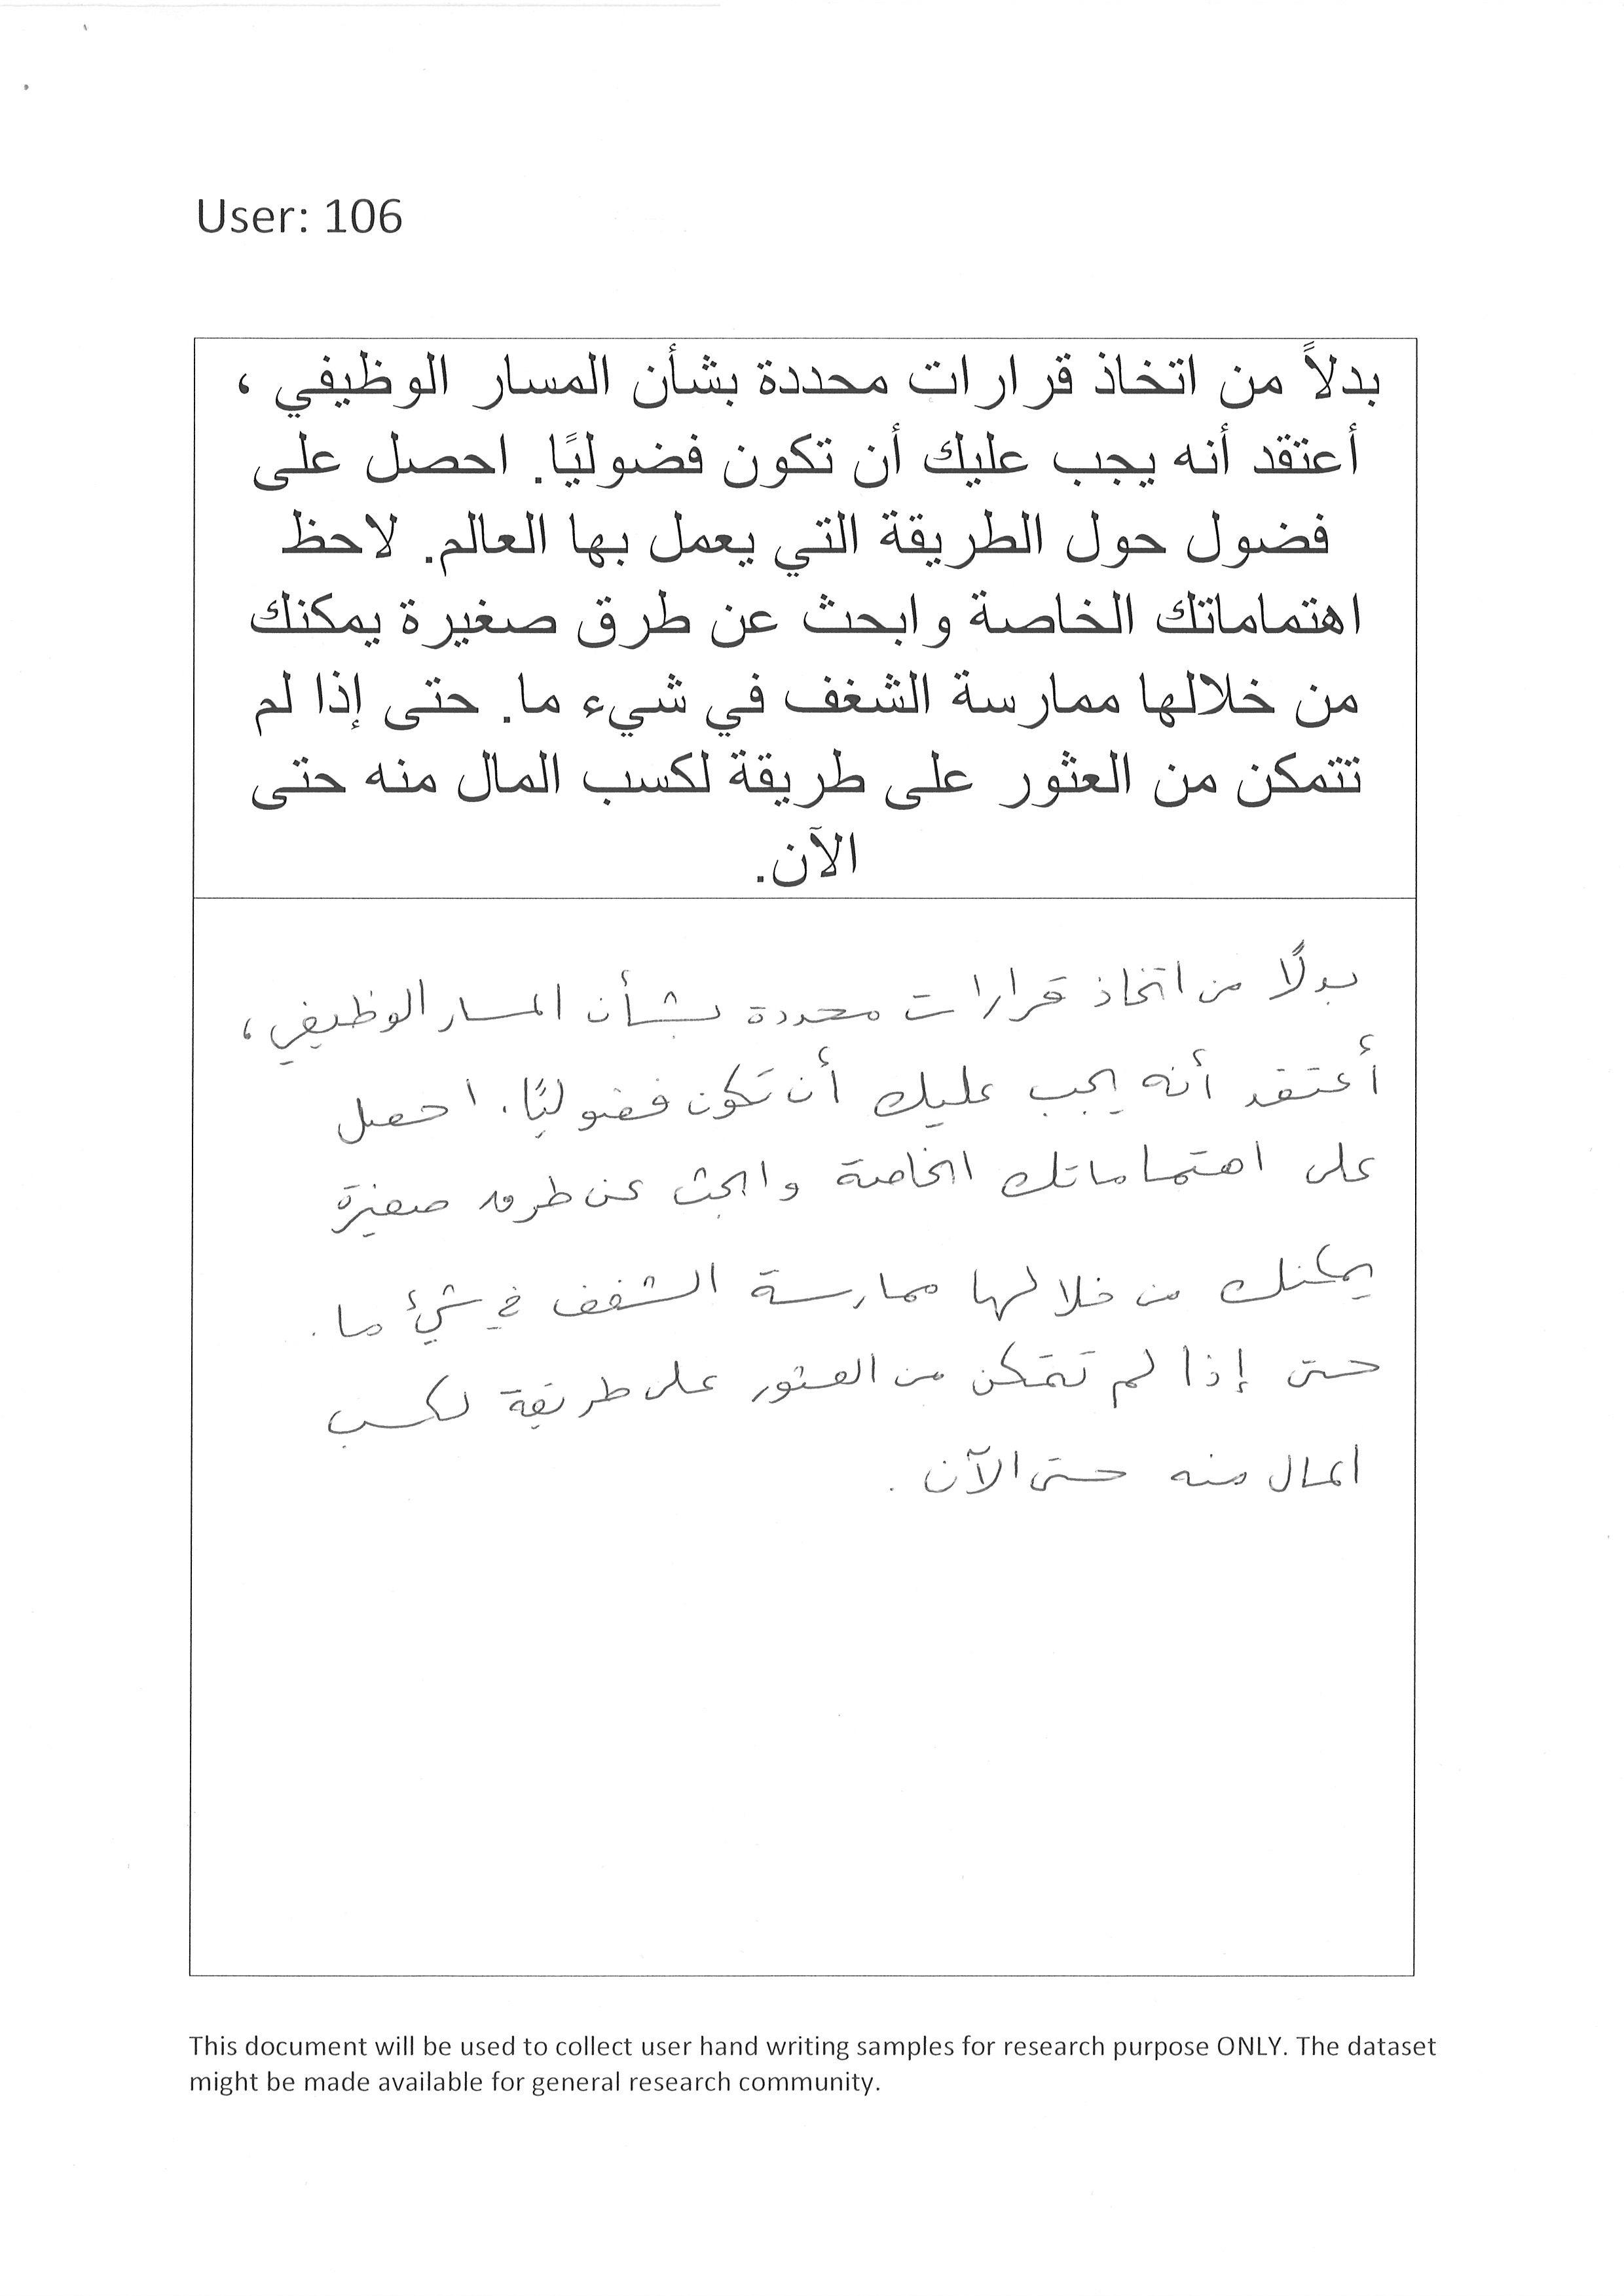 User: 106
بدلاً من اتخاذ قرارات محددة بشأن المسار الوظيفي ،
أعتقد أنه يجب عليك أن تكون فضوليًا. احصل على
فضول حول الطريقة التي يعمل بها العالم. لاحظ
اهتماماتك الخاصة وابحث عن طرق صغيرة يمكنك
من خلالها ممارسة الشغف في شيء ما. حتى إذا لم
تتمكن من العثور على طريقة لكسب المال منه حتى
الآن.
بدلًا من اتخاذ قرارات محددة بشأن المسار الوظيفي ،
أعتقد أنه يجب عليك أن تكون فضوليًا. احصل
على اهتماماتك الخاصة وابحث عن طرق صغيرة
يمكنك من خلالها ممارسة الشغف في شيء ما .
حتى إذا لم تتمكن من العثور على طريقة لكسب
المال منه حتى الآن .
This document will be used to collect user hand writing samples for research purpose ONLY. The dataset
might be made available for general research community.